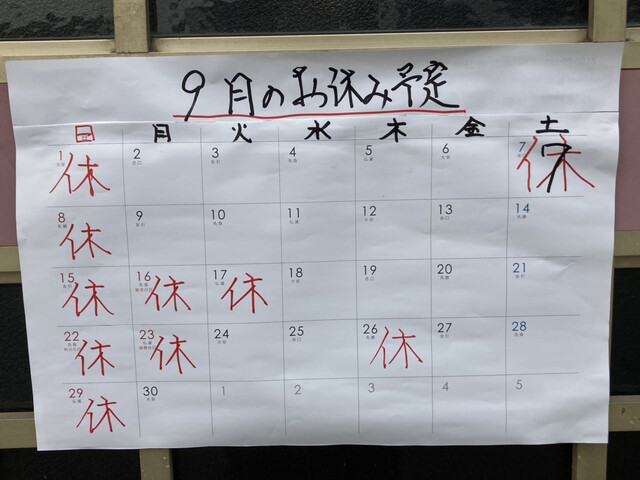 9月のお休み予定
日 月 火 水 木 金 土
1 2 3 4 5 6 7
休 休
8 9 10 11 12 13 14
休
15 16 17 18 19 20 21
休 休 休
22 23 24 25 26 27 28
休 休 休
29 30 1 2 3 4 5
休